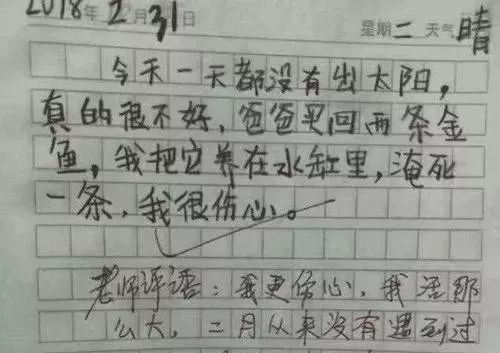 2018年2月31日 星期二 天气晴
今天一天都没有出太阳,
真的很不好,爸爸买回两条金
鱼,我把它养在水缸里,淹死
一条,我很伤心。
老师评语:我更伤心,我活那
么大,二月从来没有遇到过